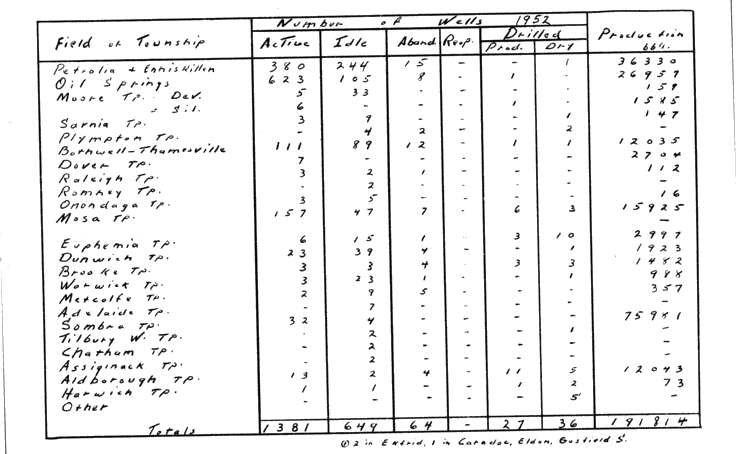 Number of Wells 1952
Field or Township Active Idle Aband Reop. Drilled Prod. Dry Production bbls.
Petrolia & Enniskillen 380 244 15 - - 1 36330
Oil Springs 623 105 8 - 1 - 26957
Moore Tp. Dev. 5 33 - - - - 159
" Sil. 6 - - - 1 - 1585
Sarnia Tp. 3 9 - - - 1 147
Plympton Tp. - 4 2 - - 2 -
Bothwell-Thamesville 111 89 12 - 1 1 12035
Dover Tp. 7 - - - - - 2704
Raleigh Tp. 3 2 1 - - - 112
Romney Tp. - 2 - - - - -
Onondaga Tp. 3 5 - - - - 16
Mosa Tp. 157 47 7 - 6 3 15925
-
Euphemia Tp. 6 15 1 - 3 10 2997
Dunwich Tp. 23 39 4 - - 1 1923
Brooke Tp. 3 3 4 - 3 3 1482
Warwick Tp. 3 23 1 - - 1 988
Metcalfe Tp. 2 9 5 - - - 357
Adelaide Tp. - 7 - - - - -
Sombra Tp. 32 4 - - - - 75981
Tilbury W. Tp. - 2 - - - 1 -
Chatham Tp. - 2 - - - - -
Assiginack Tp. - 2 - - - - -
Aldborough Tp. 13 2 4 - 11 5 12043
Harwich Tp. 1 1 - - 1 2 73
Other - - - - - 5 -
Totals 1381 649 64 - 27 36 191814
① 2 in Exfrid, 1 in Caradoc, Eldon, Gosfield S.